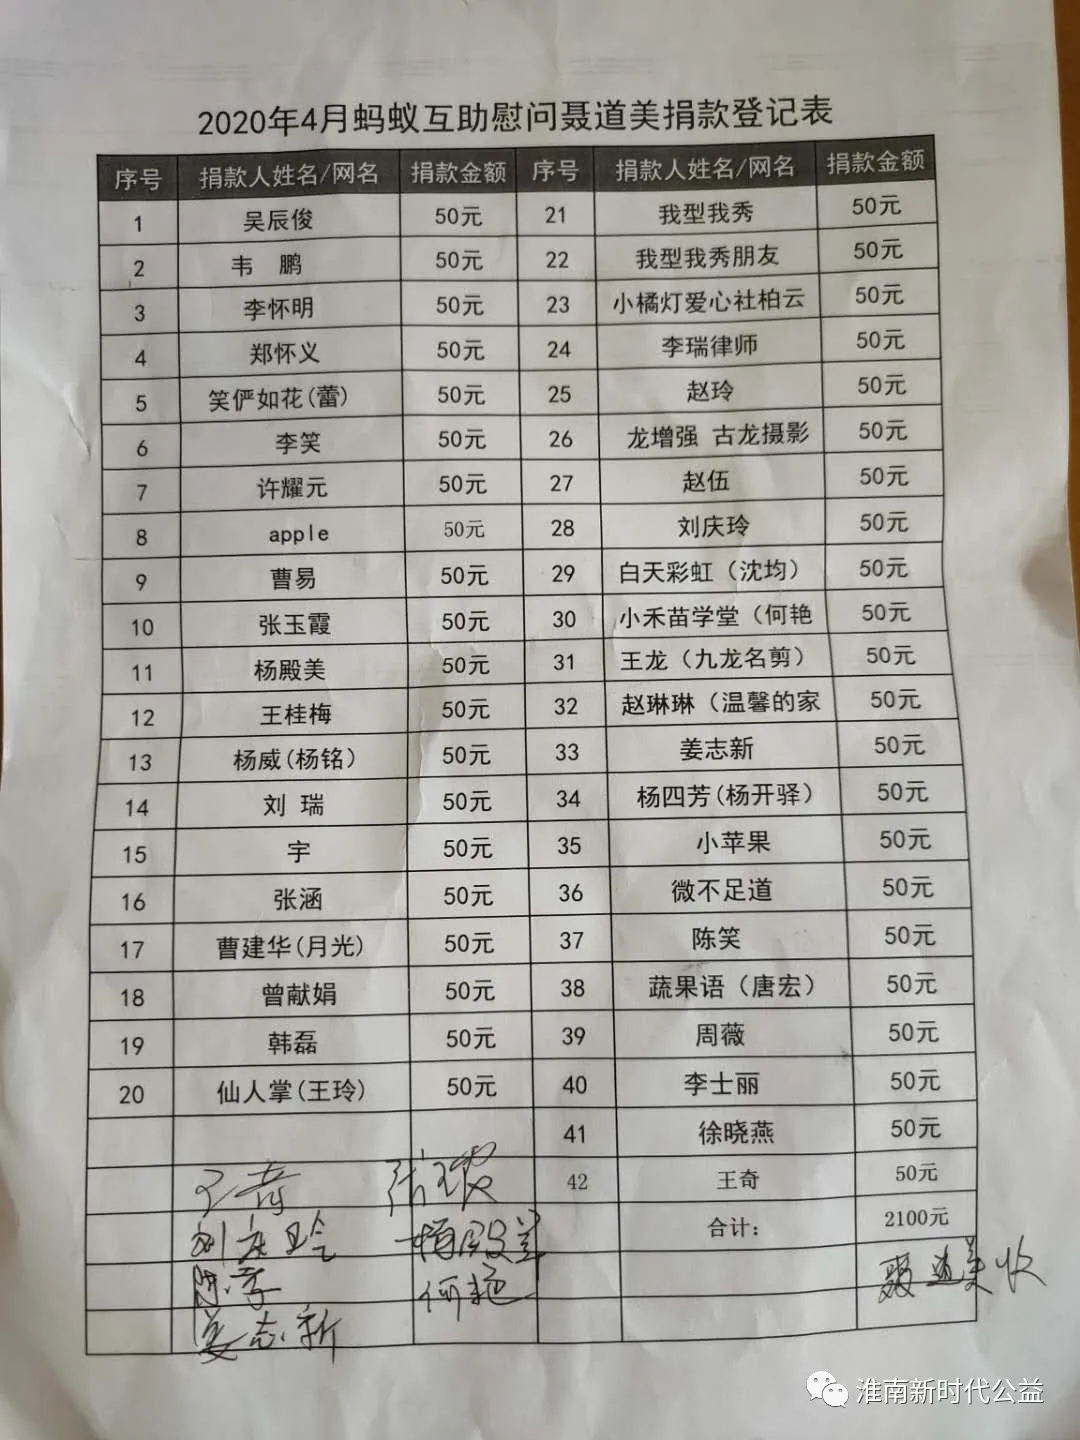 2020年4月蚂蚁互助慰问聂道美捐款登记表
序号 捐款人姓名/网名 捐款金额 序号 捐款人姓名/网名 捐款金额
1 吴辰俊 50元 21 我型我秀 50元
2 韦 鹏 50元 22 我型我秀朋友 50元
3 李怀明 50元 23 小橘灯爱心社柏云 50元
4 郑怀义 50元 24 李瑞律师 50元
5 笑俨如花(蕾) 50元 25 赵玲 50元
6 李笑 50元 26 龙增强 古龙摄影 50元
7 许耀元 50元 27 赵伍 50元
8 apple 50元 28 刘庆玲 50元
9 曹易 50元 29 白天彩虹（沈均） 50元
10 张玉霞 50元 30 小禾苗学堂（何艳 50元
11 杨殿美 50元 31 王龙（九龙名剪） 50元
12 王桂梅 50元 32 赵琳琳（温馨的家 50元
13 杨威(杨铭) 50元 33 姜志新 50元
14 刘 瑞 50元 34 杨四芳(杨开驿) 50元
15 宇 50元 35 小苹果 50元
16 张涵 50元 36 微不足道 50元
17 曹建华(月光) 50元 37 陈笑 50元
18 曾献娟 50元 38 蔬果语（唐宏） 50元
19 韩磊 50元 39 周薇 50元
20 仙人掌(王玲) 50元 40 李士丽 50元
41 徐晓燕 50元
王奇 张玉霞 42 王奇 50元
刘庆玲 杨殿美 合计： 2100元
何艳 聂道美收
姜志新
淮南新时代公益